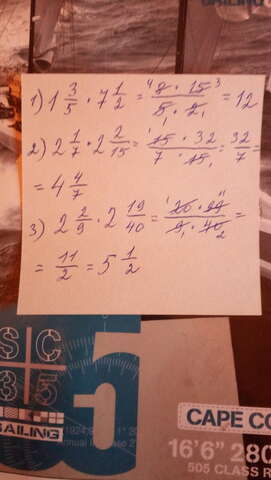 1) 1 3/5 · 7 1/2 = 8 · 15 / 5 · 2 = 12
2) 2 1/7 · 2 2/15 = 15 · 32 / 7 · 15 = 32/7 =
= 4 4/7
3) 2 2/9 · 2 19/40 = 20 · 99 / 9 · 40 =
= 11/2 = 5 1/2
SC
35
SAILING
5
CAPE CO
16'6" 280
505 CLASS R